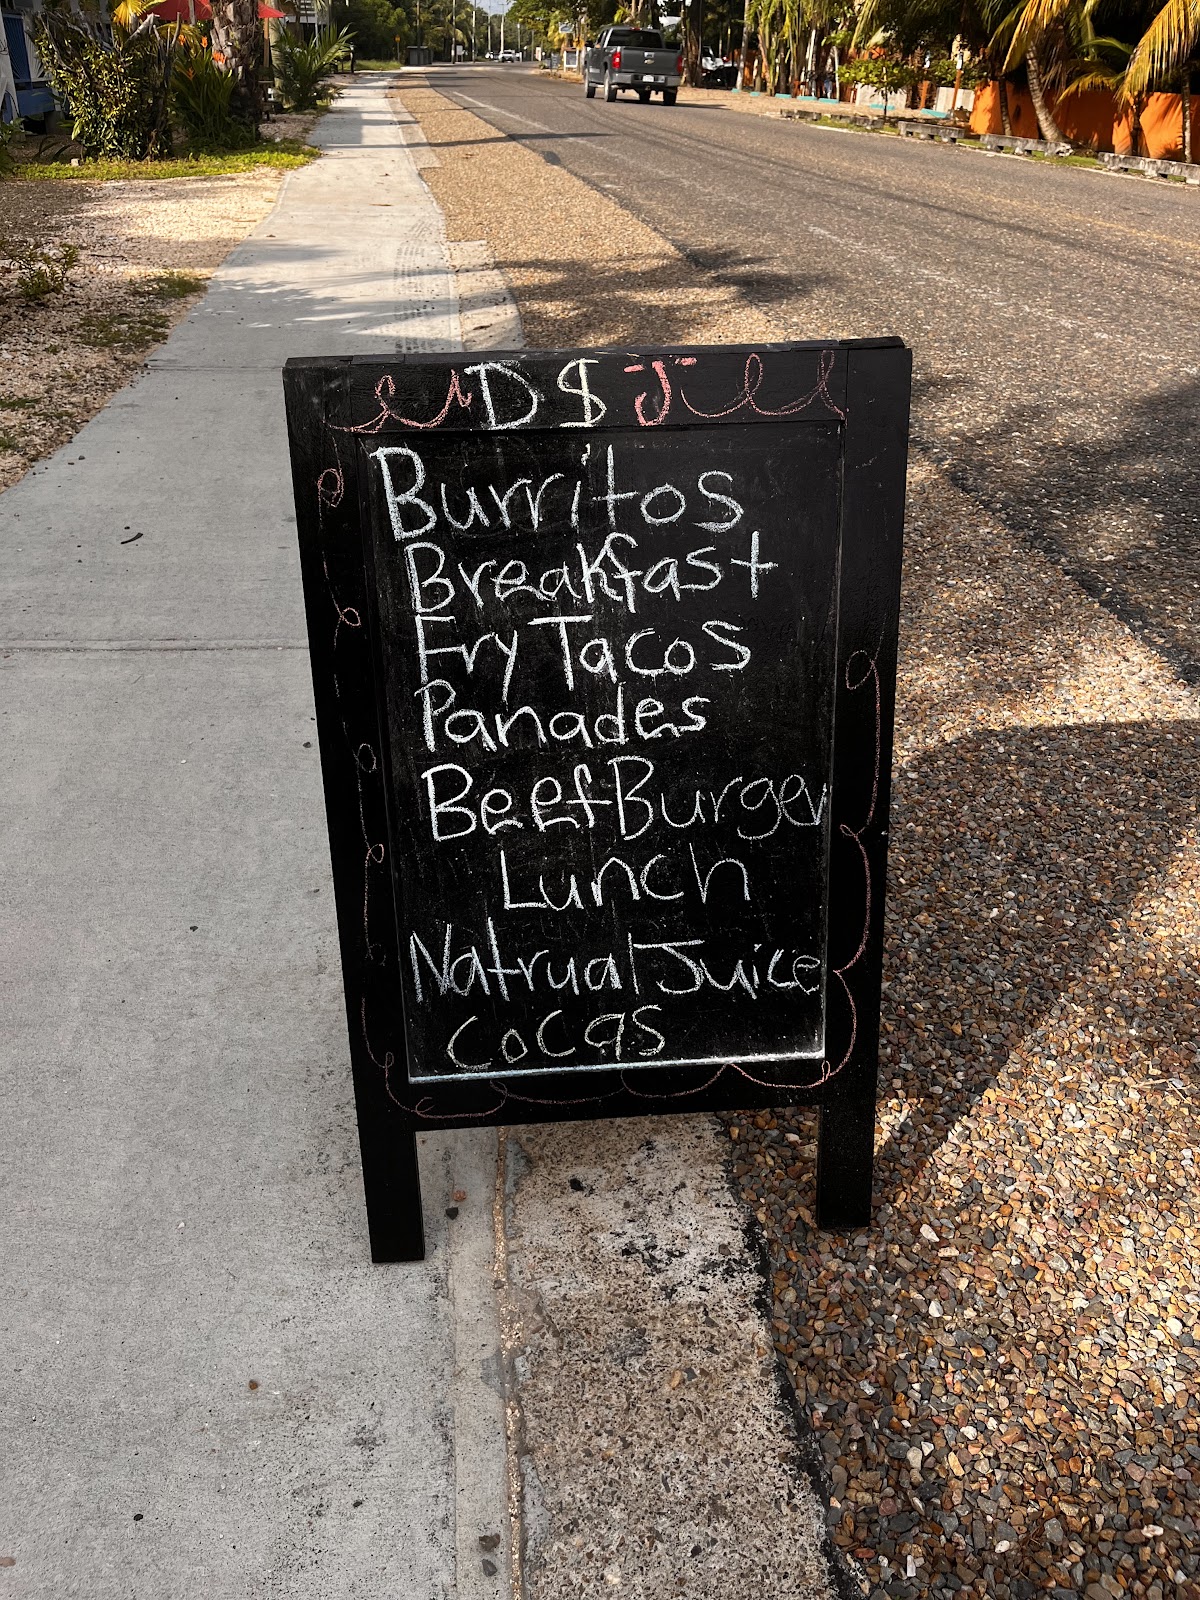 D $ J
Burritos
Breakfast
Fry Tacos
Panades
Beef Burger
Lunch
Natrual Juice
cocas